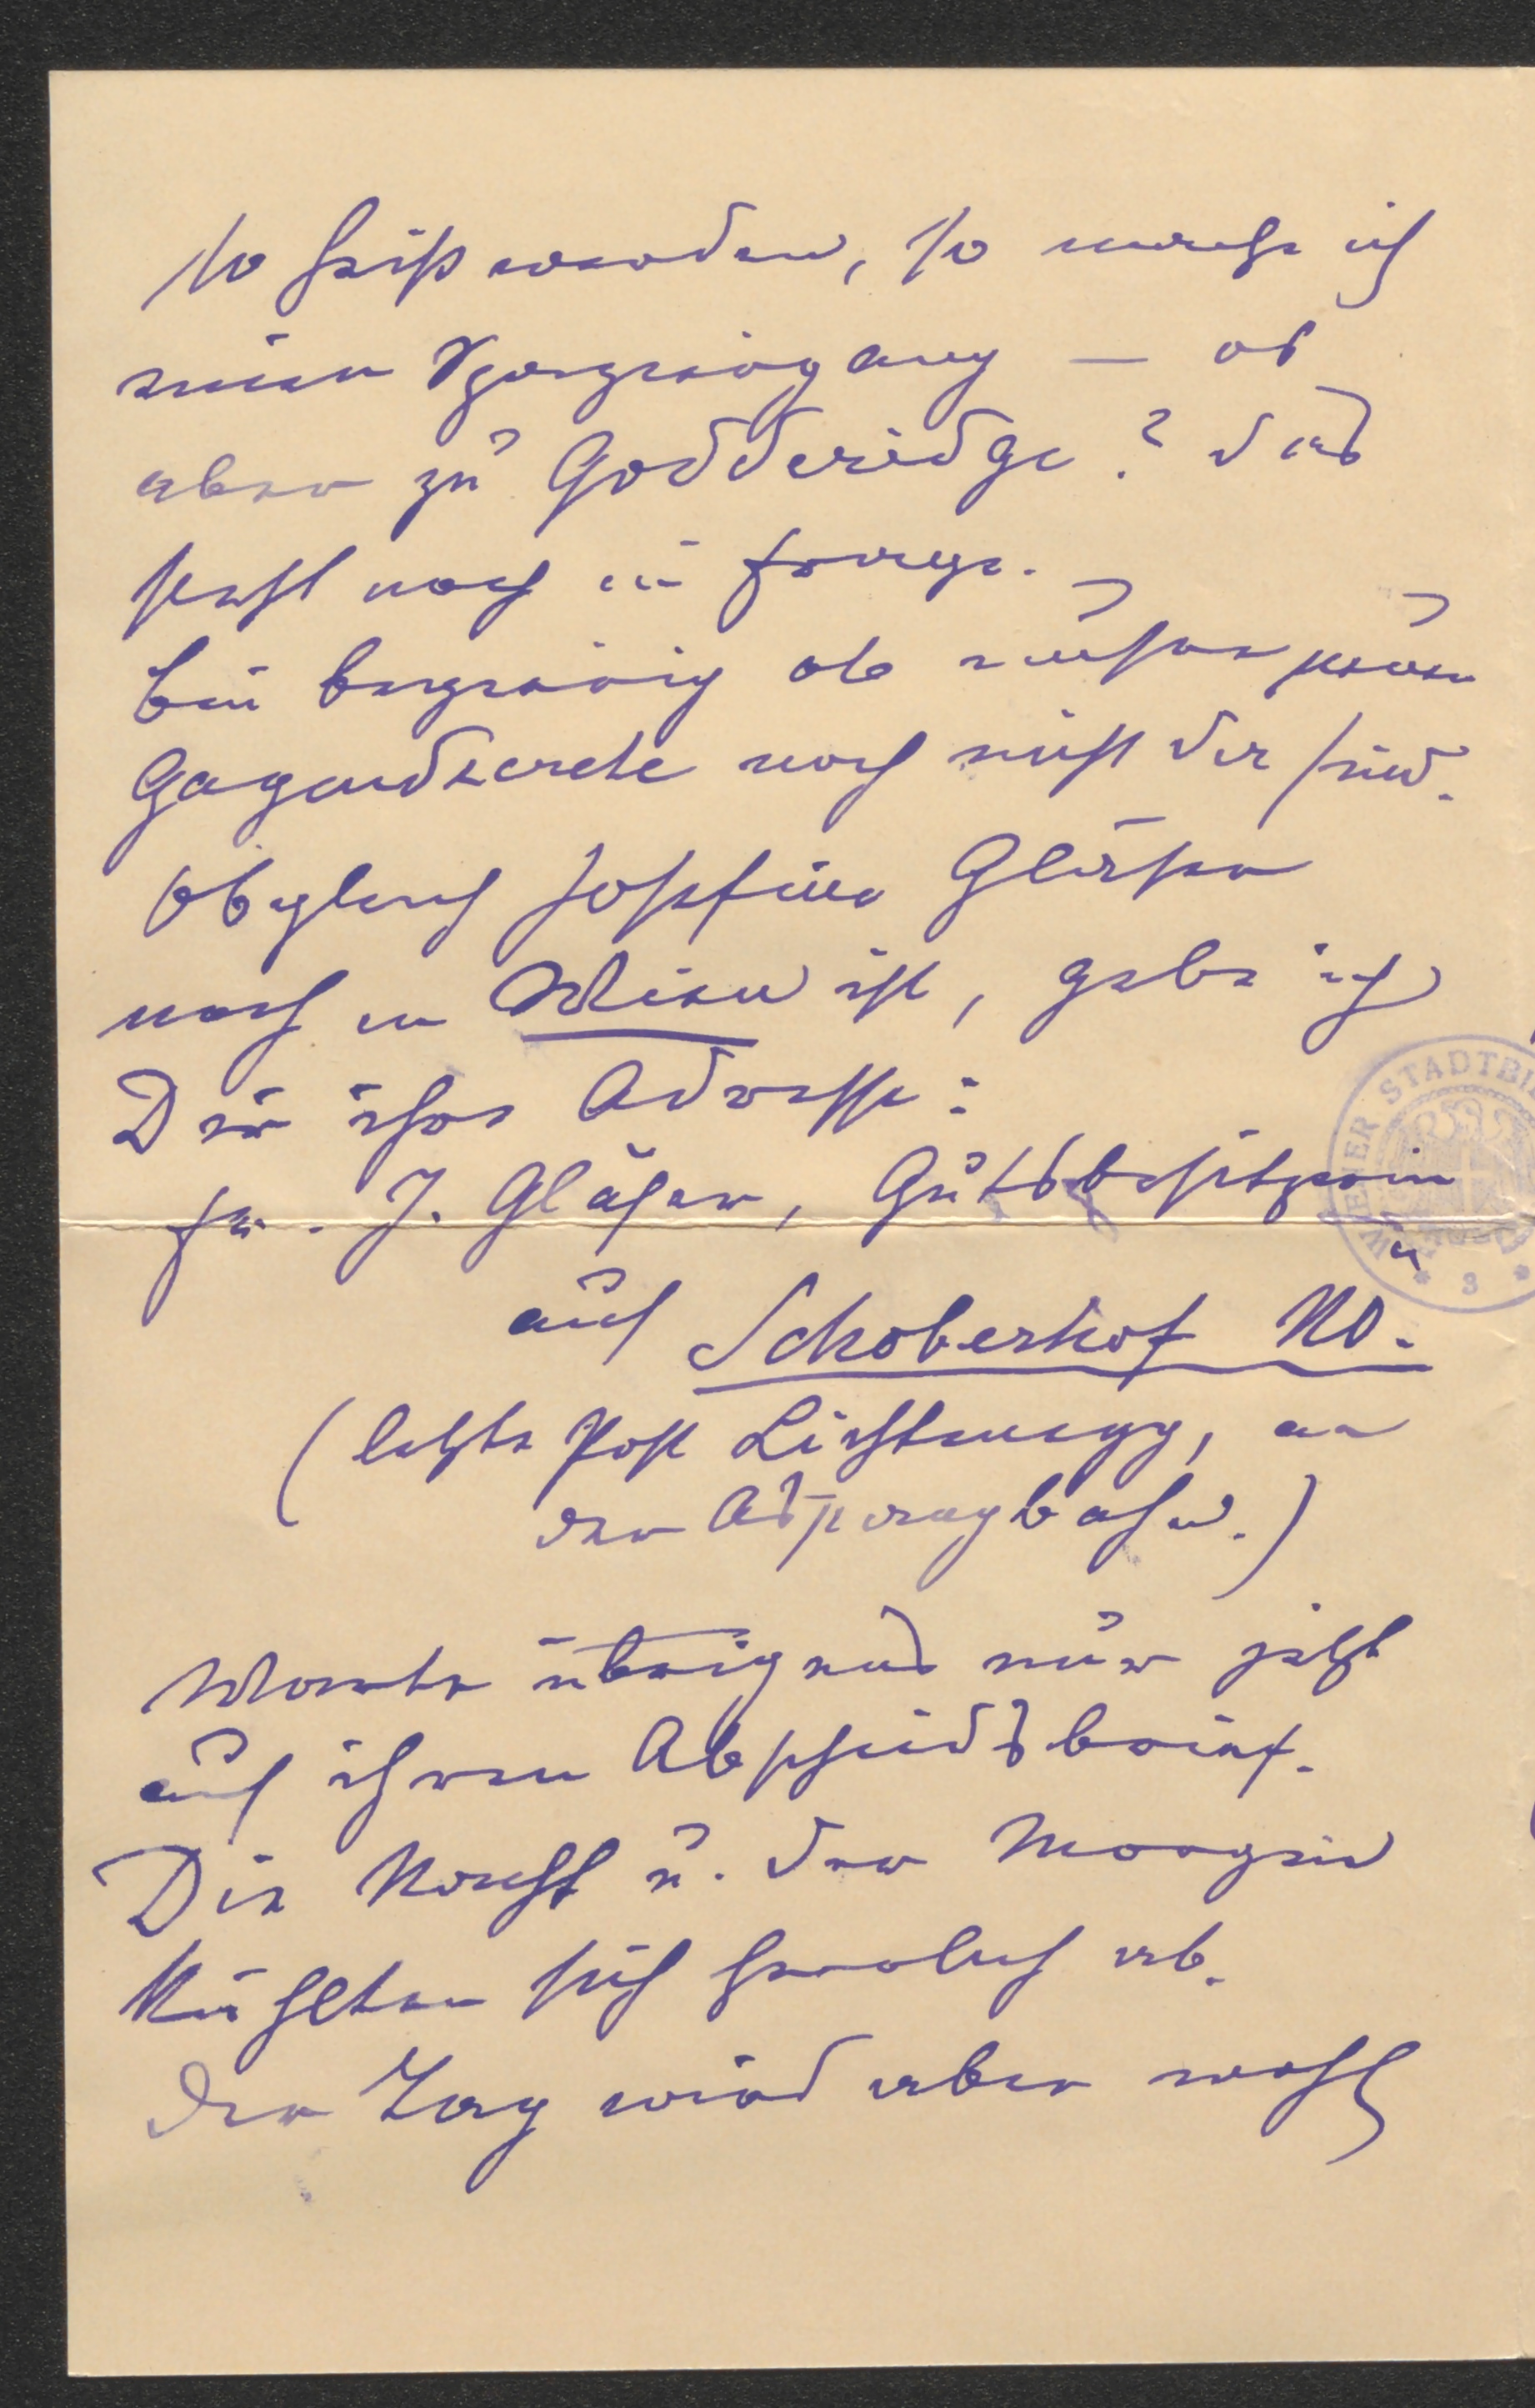 so heiß werden, so mache ich
einen Spaziergang — ob
aber zu Godderidge? das
steht noch in Frage.
bin begierig ob unsere
noch nicht da sind.
Obgleich Josefine Gläser
noch in Wien ist, gebe ich
Dir ihre Adresse:
Fr. J. Gläser, Gutsbesitzerin
in
auf Schoberhof NÖ.
(letzte Post Lichtenegg, an
der Aspangbahn.)
Warte übrigens nur jetzt
auf ihren Abschiedsbrief.
Die Nacht u. der Morgen
kühlten sich herrlich ab.
der Tag wird aber wohl
WIENER STADTBI
* 3 *